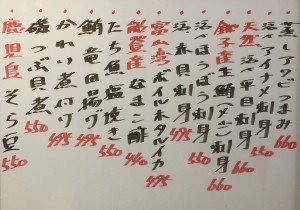 蒸しアワビつまみ 660
活〆アイナメ刺身 660
天然活〆平目刺身 660
銚子産生鮪(メヂ)刺身 660
活〆ほうぼう刺身 550
活〆赤貝刺身 495
富山湾ボイルホタルイカ 495
能登産なまこ酢 440
たち魚塩焼き 550
鮪竜田揚げ 495
かれい煮付け 495
磯つぶ貝煮 550
鹿児島そら豆 550